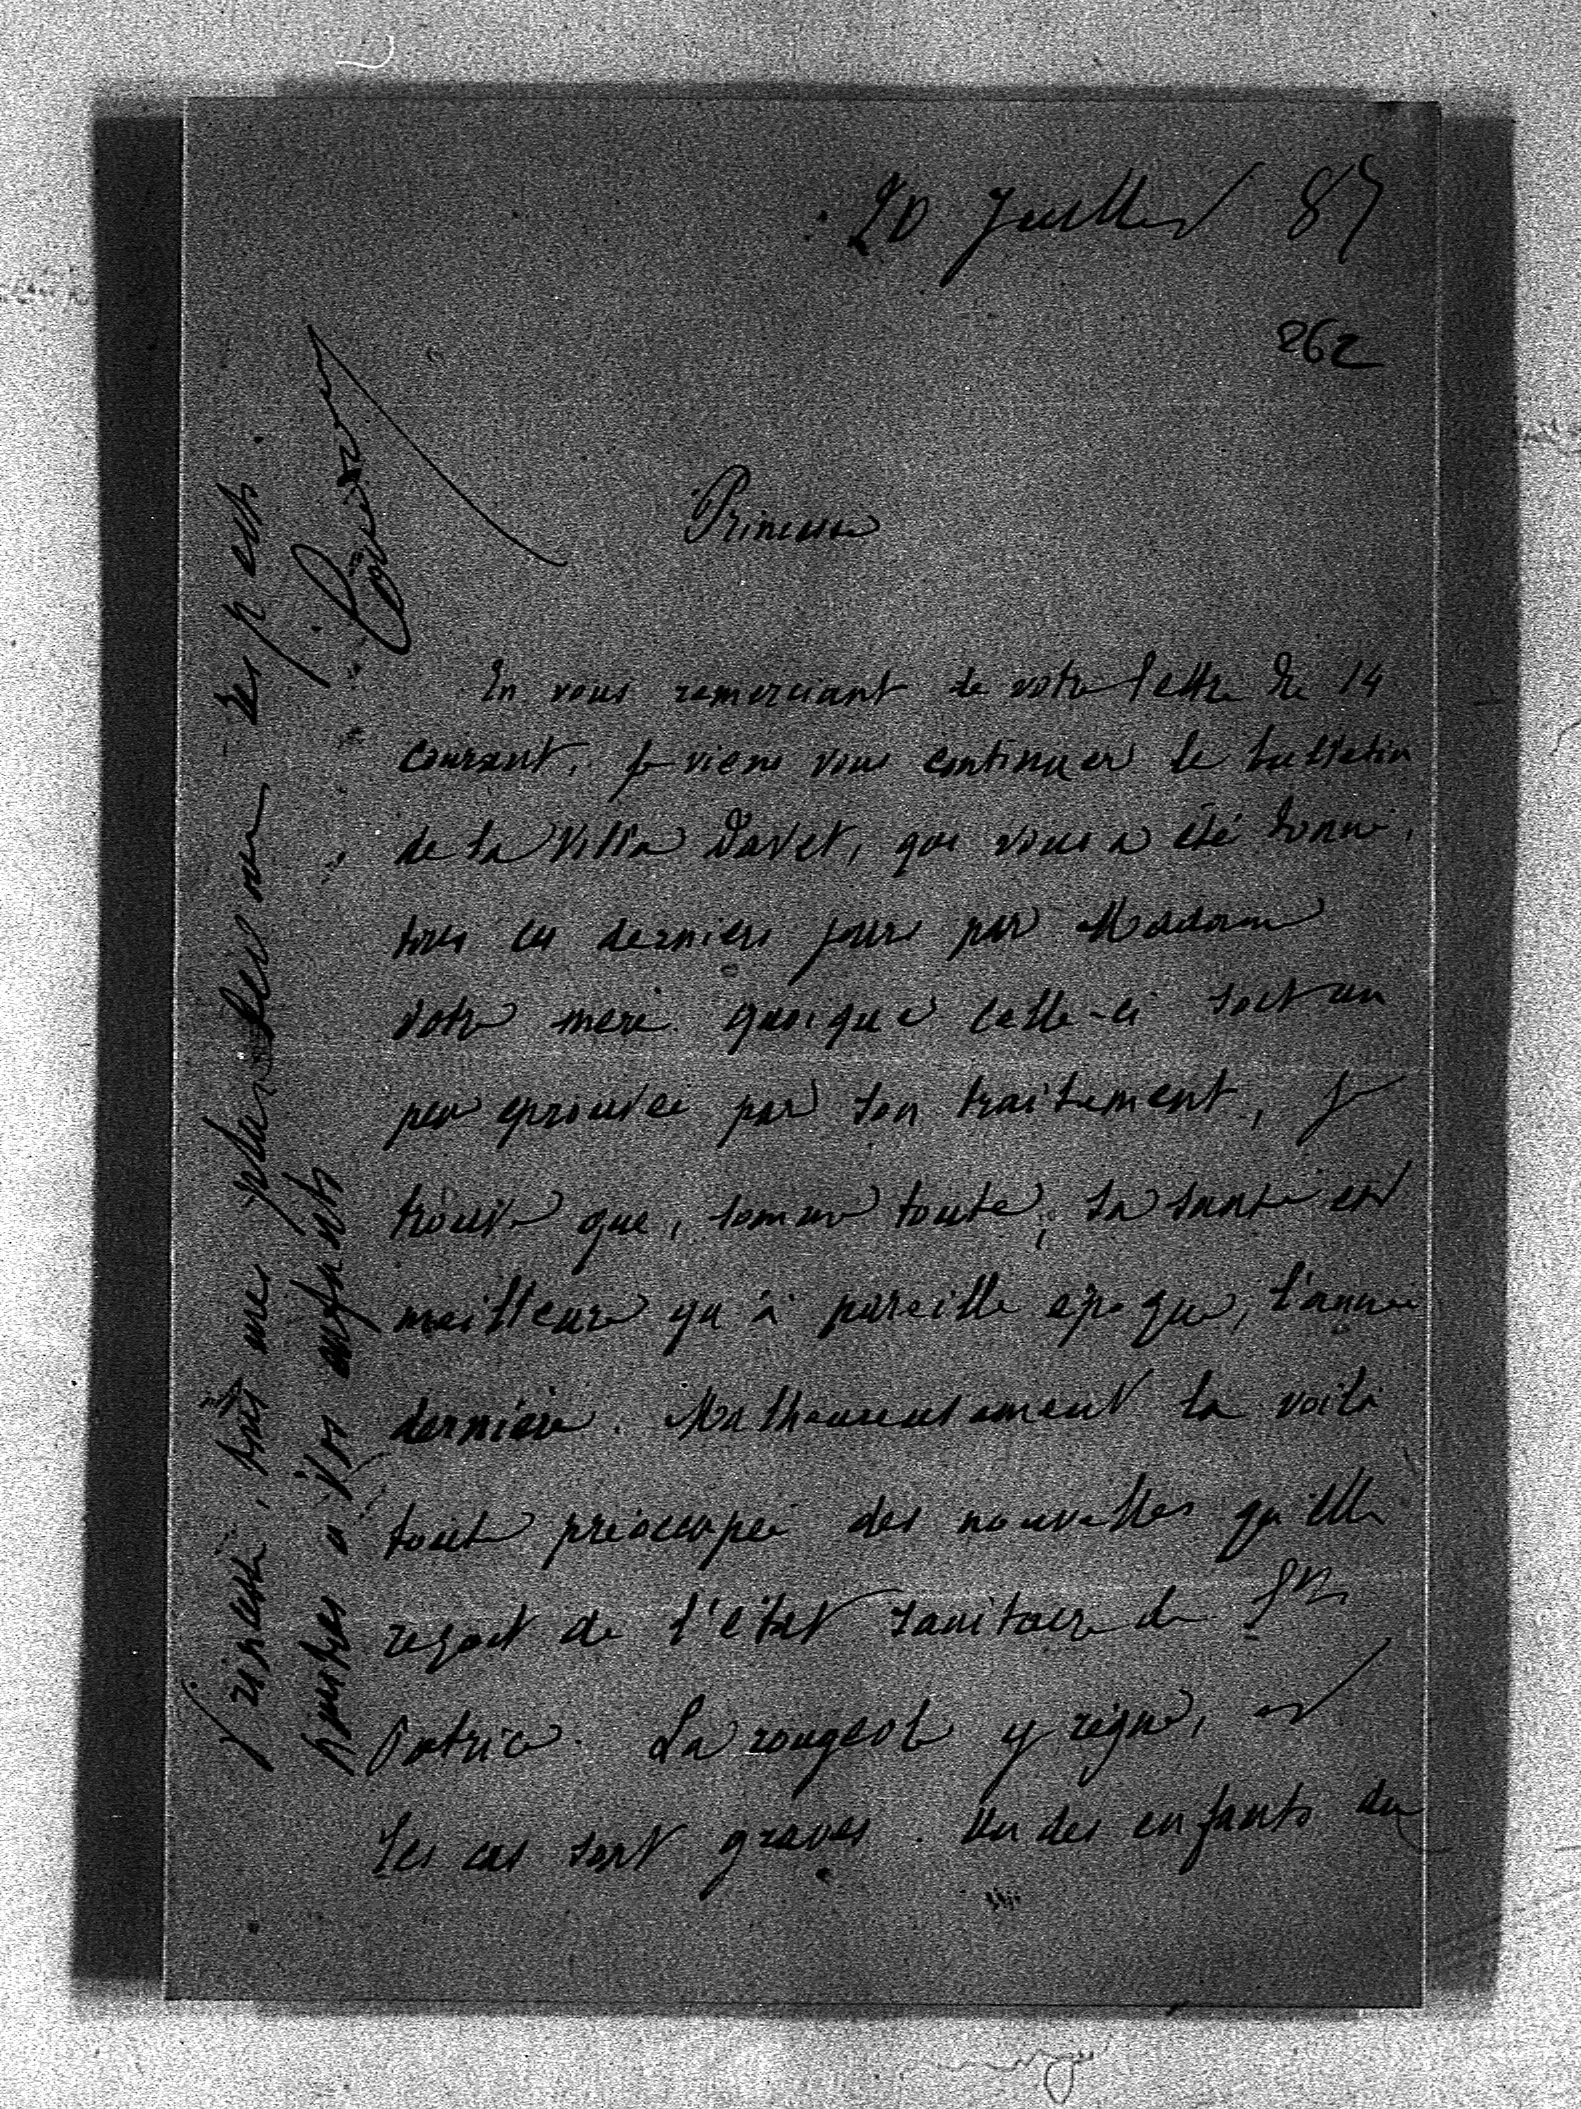 20 Juillet 85
262
Princesse
En vous remerciant de votre lettre du 14
courant, je viens vous continuer le bulletin
de la Villa Davet, qui vous a été donné,
tous ces derniers jours par Madame
votre mère. Quoique celle-ci soit un
peu éprouvée par son traitement, je
trouve que, somme toute, sa santé est
meilleure qu'à pareille époque, l'année
dernière. Malheureusement la voilà
toute préoccupée des nouvelles qu'elle
reçoit de l'état sanitaire de Sn
Patrice. La rougeole y règne, et
les cas sont graves. Un des enfants du
Princesse, tout mes plus
hommages à Vos enfants